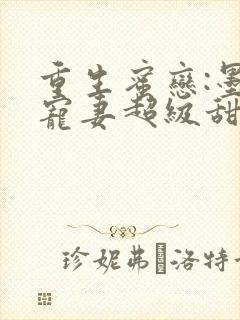 重生蜜戀:墨
寵妻超級甜
珍妮弗 洛特